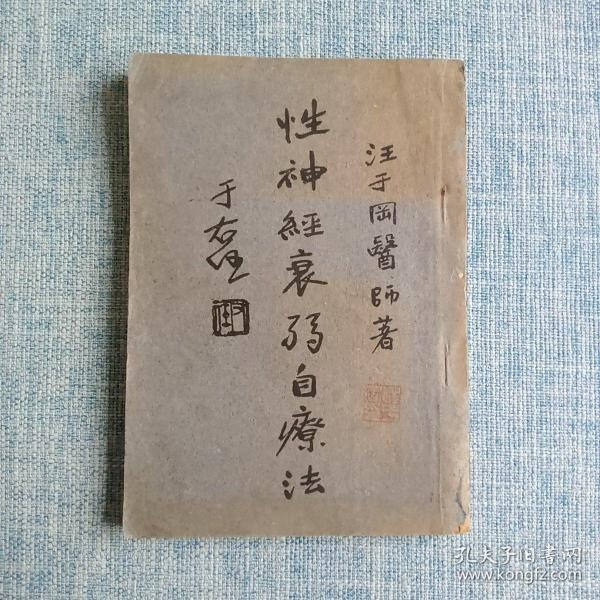 汪于岡醫師著
性神經衰弱自療法
于右任
孔夫子旧书网
www.kongfz.com